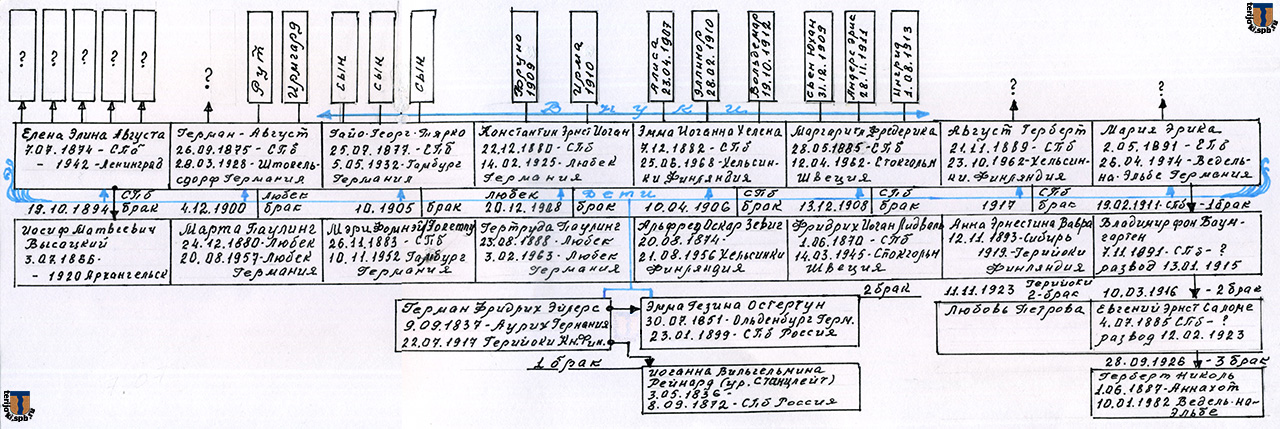 terijoki.spb.ru
?
?
?
?
?
?
Рут
Ирмгард
сын
сын
сын
Бруно
1909
Ирма
1910
Алиса
23.04.1907
Эллинор
28.02.1910
Вольдемар
19.10.1912
Свен Юхан
31.12.1909
Андерс Эрик
28.11.1911
Ингрид
1.08.1913
?
?
Внуки
Елена Элина Августа
7.07.1874 - СПб
- 1942 - Ленинград
Герман - Август
26.09.1875 - СПб
28.03.1928 - Штокельсдорф Германия
Гайо-Георг-Мярко
25.09.1877. - СПб
5.05.1932 - Гамбург
Германия
Константин Эрнст Иоган
22.12.1880 - СПб
14.02.1925 - Любек
Германия
Эмма Иоганна Хелена
7.12.1882 - СПб
25.06.1968 - Хельсинки Финляндия
Маргарита Фредерика
28.05.1885 - СПб
12.04.1962 - Стокгольм
Швеция
Август Герберт
21.11.1889 - СПб
23.10.1962 - Хельсинки. Финляндия
Мария Эрика
2.05.1891 - СПб
26.04.1974 - Ведель-на-Эльбе Германия
Дети
19.10.1894 СПб брак
4.12.1900 Любек брак
10.1905 брак
Любек
20.12.1908 брак
10.04.1906 СПб брак
13.12.1908 СПб брак
1917 СПб брак
19.02.1911 СПб - 1 брак
Иосиф Матвеевич
Высоцкий
3.07.1866 -
- 1920 Архангельск
Марта Паулинг
24.12.1880 - Любек
20.08.1957 - Любек
Германия
Мэри
26.11.1883 - СПб
10.11.1952 Гамбург
Германия
Гертруда Паулинг
23.08.1888 - Любек
3.02.1963 - Любек
Германия
Альфред Оскар Зевиг
20.08.1874.
21.08.1956 Хельсинки
Финляндия
Фридрих Иоган Лидваль
1.06.1870 - СПб
14.03.1945 - Стокгольм
Швеция
Анна Эрнестина Вавра
12.11.1893 - Сибирь
1919 - Терийоки
Финляндия
Владимир фон Баумгортен
7.11.1891 - СПб - ?
развод 13.01.1915
2 брак
11.11.1923 Терийоки
2-брак
10.03.1916 - 2 брак
Герман Фридрих Эйлерс
9.09.1837 - Аурих Германия
22.07.1917 Терийоки Кн. Фин.
Эмма Гезина Остертун
30.07.1851 - Ольденбург Герм.
23.01.1899 - СПб Россия
Любовь Петрова
Евгений Эрнст Салоне
4.07.1885 СПб - ?
развод 12.02.1923
1 брак
Иоганна Вильгельмина
Рейнард (ур. Станцлейт)
3.05.1836 -
8.09.1872 - СПб Россия
28.09.1926 - 3 брак
Герберт Николь
1.06.1887 - Аннахот
10.01.1982 Ведель-на-Эльбе
terijoki.spb.ru